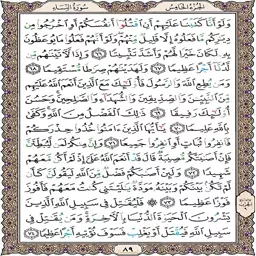 الجزء الخامس سورة النساء
ولو أنا كتبنا عليهم أن اقتلوا أنفسكم أو اخرجوا من
دياركم ما فعلوه إلا قليل منهم ولو أنهم فعلوا ما يوعظون
به لكان خيرا لهم وأشد تثبيتا ٦٦ وإذا لآتيناهم من
لدنا أجرا عظيما ٦٧ ولهديناهم صراطا مستقيما ٦٨
ومن يطع الله والرسول فأولئك مع الذين أنعم الله عليهم
من النبيين والصديقين والشهداء والصالحين وحسن
أولئك رفيقا ٦٩ ذلك الفضل من الله وكفى
بالله عليما ٧٠ يا أيها الذين آمنوا خذوا حذركم
فانفروا ثبات أو انفروا جميعا ٧١ وإن منكم لمن ليبطئن
فإن أصابتكم مصيبة قال قد أنعم الله علي إذ لم أكن معهم
شهيدا ٧٢ ولئن أصابكم فضل من الله ليقولن كأن
لم تكن بينكم وبينه مودة يا ليتني كنت معهم فأفوز
فوزا عظيما ٧٣ فليقاتل في سبيل الله الذين
يشرون الحياة الدنيا بالآخرة ومن يقاتل في
سبيل الله فيقتل أو يغلب فسوف نؤتيه أجرا عظيما ٧٤
٨٩